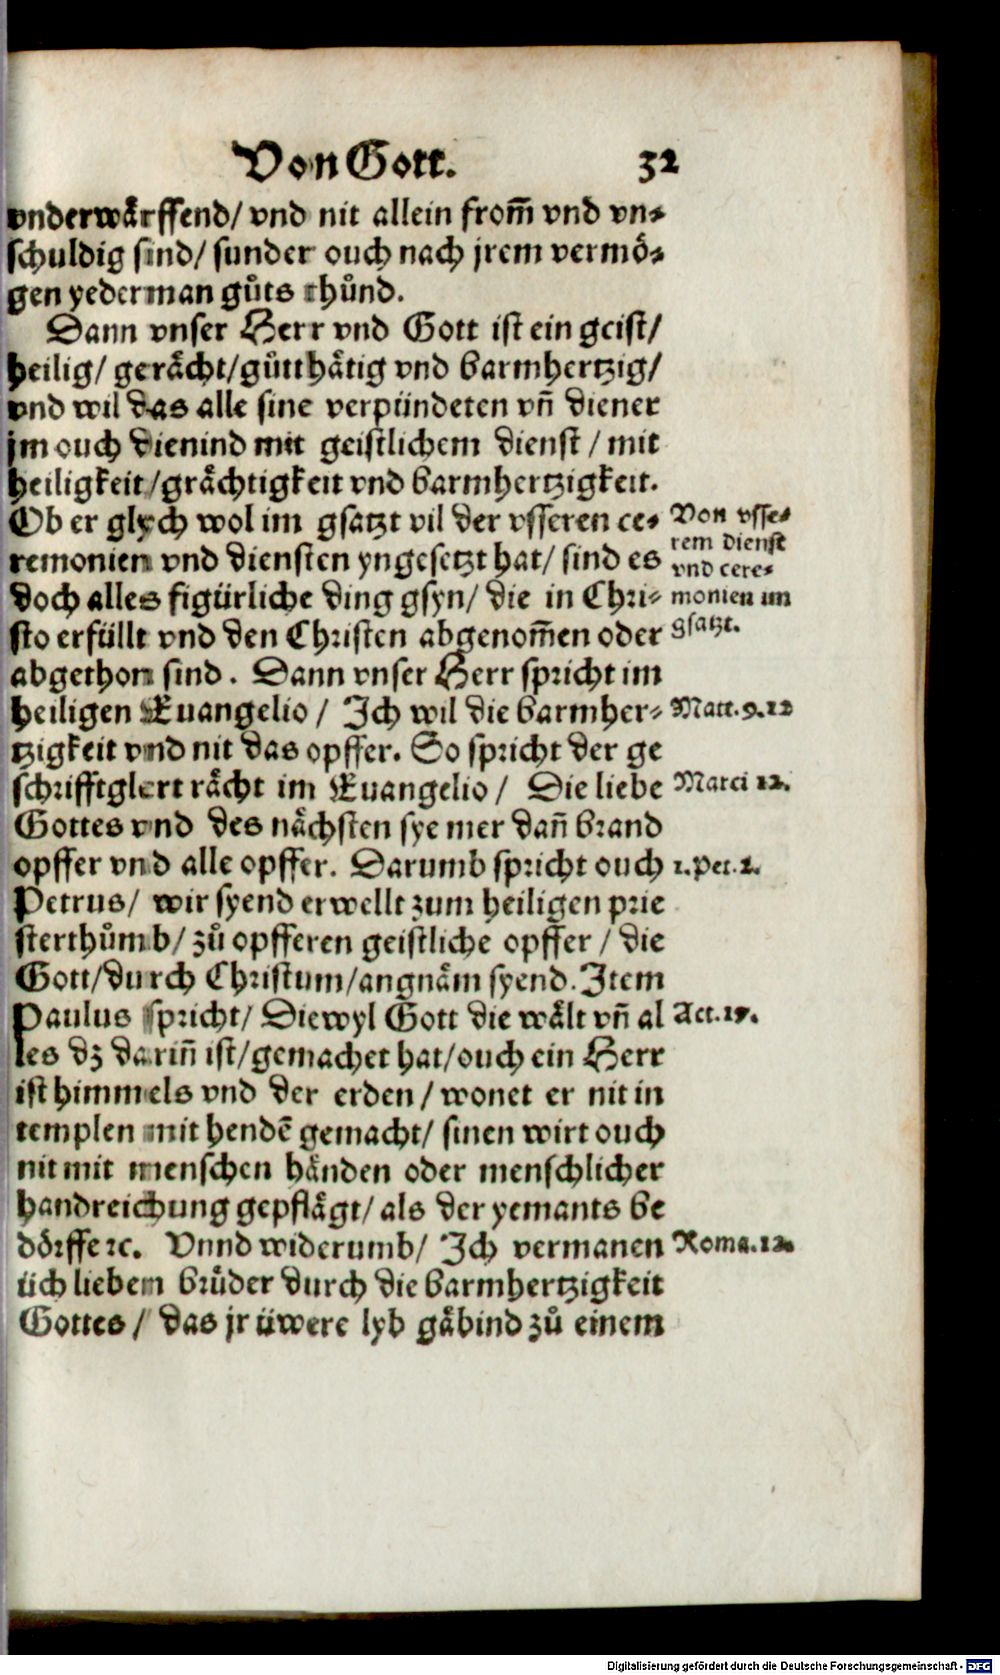 Von Gott. 32
vnderwärffend/ vnd nit allein from̃ vnd vn⸗
schuldig sind/ sunder ouch nach jrem vermö⸗
gen yederman gůts thůnd.
Dann vnser Herr vnd Gott ist ein geist/
heilig/ gerächt/gůtthätig vnd barmhertzig/
vnd wil das alle sine verpündeten vñ diener
jm ouch dienind mit geistlichem dienst / mit
heiligkeit/grächtigkeit vnd barmhertzigkeit.
Ob er glych wol im gsatzt vil der vsseren ce⸗
remonien vnd diensten yngesetzt hat/ sind es
doch alles figürliche ding gsyn/ die in Chri⸗
sto erfüllt vnd den Christen abgenom̃en oder
abgethon sind. Dann vnser Herr spricht im
heiligen Euangelio / Ich wil die barmher⸗
tzigkeit vnd nit das opffer. So spricht der ge
schrifftglert rächt im Euangelio / Die liebe
Gottes vnd des nächsten sye mer dañ brand
opffer vnd alle opffer. Darumb spricht ouch
Petrus/ wir syend erwellt zum heiligen prie
sterthůmb/ zů opfferen geistliche opffer / die
Gott/durch Christum/angnäm syend. Item
Paulus spricht/ Diewyl Gott die wält vñ al
les dz dariñ ist/gemachet hat/ouch ein Herr
ist himmels vnd der erden / wonet er nit in
templen mit hendē gemacht/ sinen wirt ouch
nit mit menschen händen oder menschlicher
handreichung gepflägt/ als der yemants be
dörffe ꝛc. Vnnd widerumb/ Ich vermanen
üch lieben brůder durch die barmhertzigkeit
Gottes / das jr üwere lyb gäbind zů einem
Von vsse⸗
rem dienst
vnd cere⸗
monien im
gsatzt.
Matt.9.12
Marci 12.
1.Pet.2.
Act.17.
Roma.12.
Digitalisierung gefördert durch die Deutsche Forschungsgemeinschaft - DFG